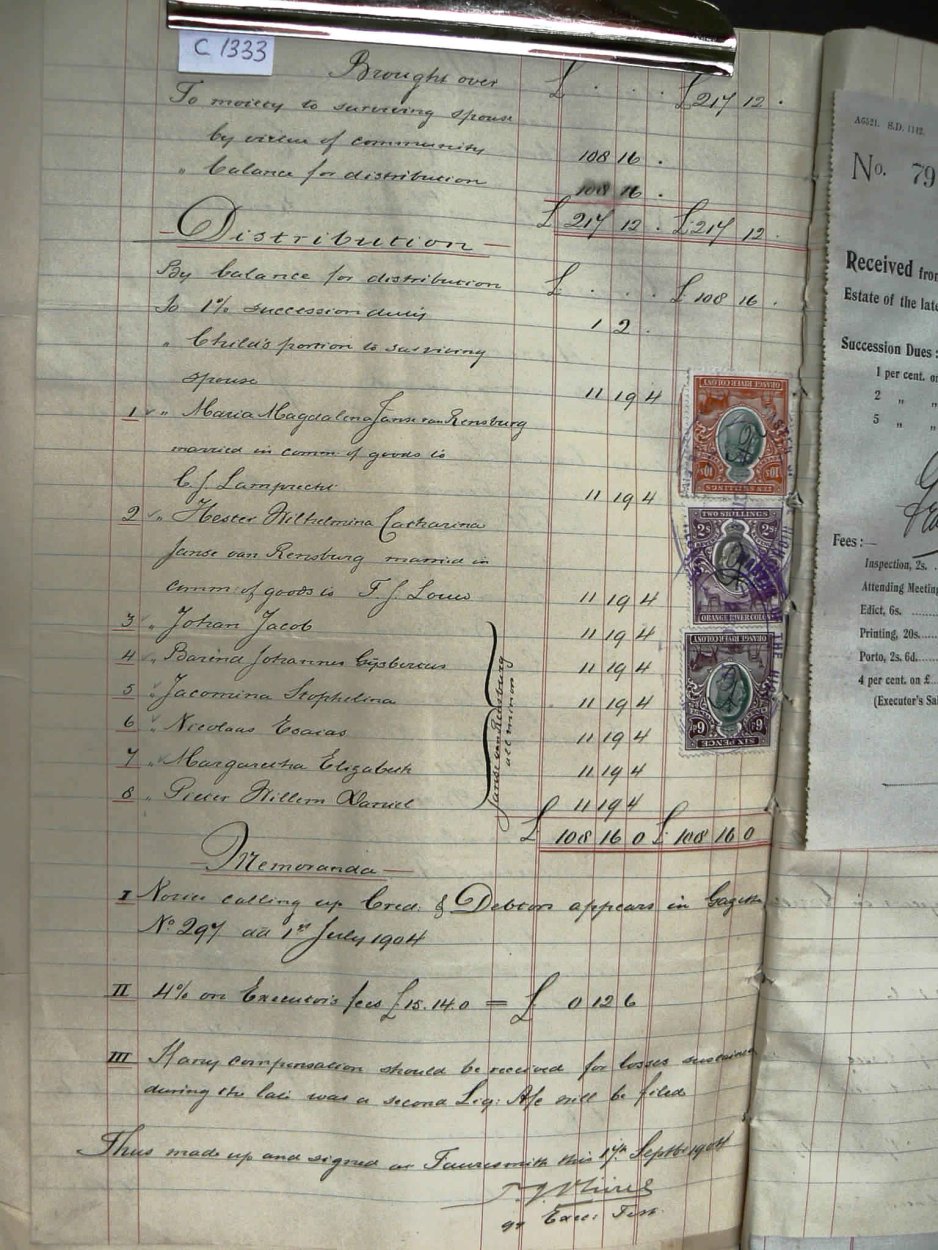 C 1333
Brought over £ . . . £217 12 .
To moiety to surviving spouse
by virtue of community 108 16 .
" balance for distribution 108 16 .
£217 12 . £217 12 .
Distribution
By balance for distribution £ . . . £108 16 .
To 1% succession duty 1 2 .
" Child's portion to surviving
spouse 11 19 4
1 " Maria Magdalina Janse van Rensburg
married in comm of goods to
C. J. Lamprecht 11 19 4
2 " Hester Wilhelmina Catharina
Janse van Rensburg married in
comm: of goods to F. J. Louw 11 19 4
3 " Johan Jacob 11 19 4
4 " Barend Johannes Gysbertus 11 19 4
5 " Jacomina Stophelina 11 19 4
6 " Nicolaas Esaias 11 19 4
7 " Margaretha Elizabeth 11 19 4
8 " Pieter Willem Daniel 11 19 4
Janse van Rensburg
all minors
£108 16 0 £108 16 0
Memoranda
I Notice calling up Cred: & Debtors appears in Gazette
No 297 dd 1st July 1904
II 4% on Executor's fees £15.14.0 = £ 0 12 6
III If any compensation should be received for losses sustained
during the late war a second Liq: A/c will be filed
Thus made up and signed at Fauresmith this 17th Septbr 1904
qq Exec: Test.
ORANGE RIVER COLONY
10s 10s
TEN SHILLINGS
TWO SHILLINGS
2s 2s
ORANGE RIVER COLONY
ORANGE RIVER COLONY
6d 6d
SIXPENCE
A6521. S.D. 1142.
No. 79
Received from
Estate of the late
Succession Dues:
1 per cent. on
2 " "
5 " "
Fees:—
Inspection, 2s.
Attending Meeting
Edict, 6s.
Printing, 20s.
Porto, 2s. 6d.
4 per cent. on £
(Executor's Sa